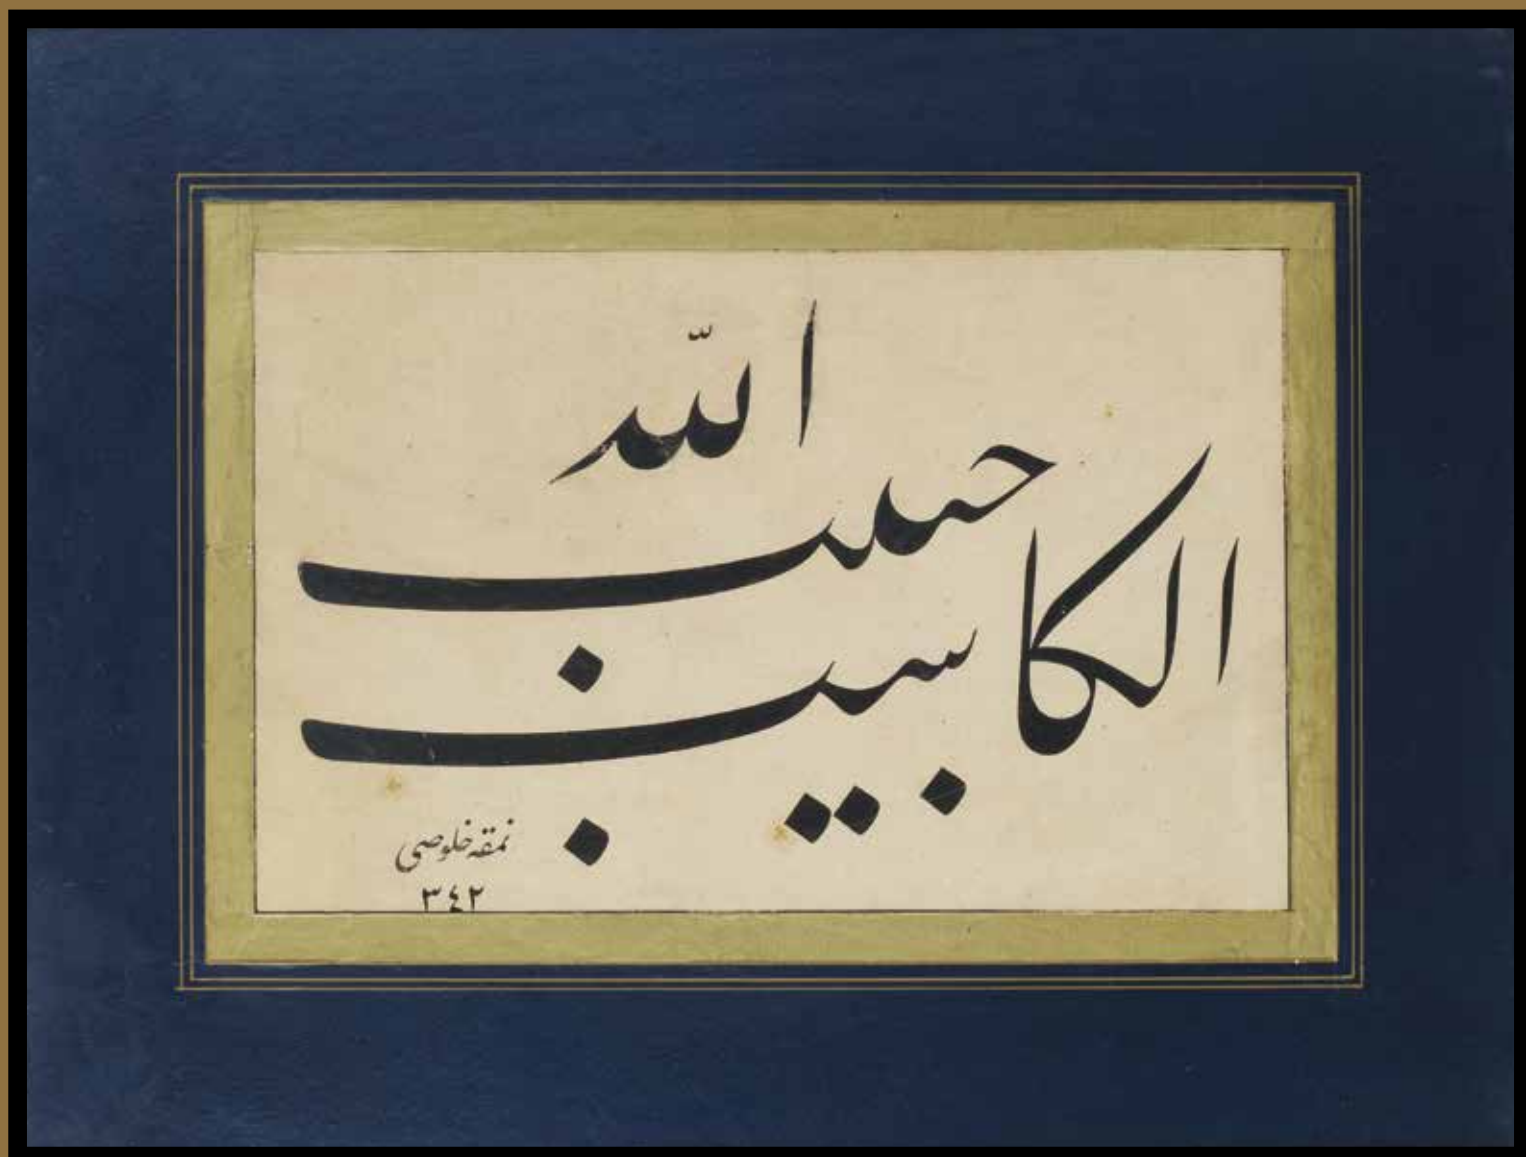 الكاسب حبيب الله
نمقه خلوصی
٣٤٢